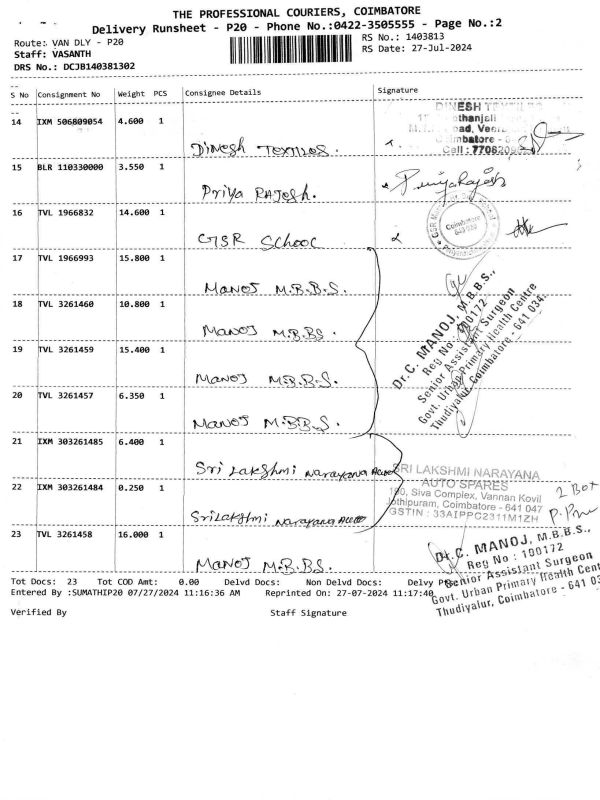 THE PROFESSIONAL COURIERS, COIMBATORE
Delivery Runsheet - P20 - Phone No.:0422-3505555 - Page No.:2
Route: VAN DLY - P20
RS No.: 1403813
Staff: VASANTH
RS Date: 27-Jul-2024
DRS No.: DCJB140381302
S No Consignment No Weight PCS Consignee Details Signature
14 IXM 506809054 4.600 1 Dinesh Textiles.
DINESH
Coimbatore -
Cell : 7708209
15 BLR 110330000 3.550 1 Priya Rajesh. Priya Rajesh
16 TVL 1966832 14.600 1 GSR School
Coimbatore
17 TVL 1966993 15.800 1 Manoj M.B.B.S.
18 TVL 3261460 10.800 1 Manoj M.B.BS.
19 TVL 3261459 15.400 1 Manoj M.B.B.S.
20 TVL 3261457 6.350 1 Manoj M.B.B.S.
Dr.C. MANOJ, M.B.B.S.,
Reg No : 100172
Senior Assistant Surgeon
Govt. Urban Primary Health Centre
Thudiyalur, Coimbatore - 641 034.
21 IXM 303261485 6.400 1 Sri Lakshmi Narayana Auto
22 IXM 303261484 0.250 1 Sri Lakshmi Narayana Auto
SRI LAKSHMI NARAYANA
AUTO SPARES
190, Siva Complex, Vannan Kovil
Jothipuram, Coimbatore - 641 047
GSTIN : 33AIPPC2311M1ZH
2 Box
23 TVL 3261458 16.000 1 Manoj M.B.BS.
Dr.C. MANOJ, M.B.B.S.,
Reg No : 100172
Senior Assistant Surgeon
Govt. Urban Primary Health Cent
Thudiyalur, Coimbatore - 641 03
Tot Docs: 23 Tot COD Amt: 0.00 Delvd Docs: Non Delvd Docs: Delvy
Entered By :SUMATHIP20 07/27/2024 11:16:36 AM Reprinted On: 27-07-2024 11:17:40
Verified By Staff Signature